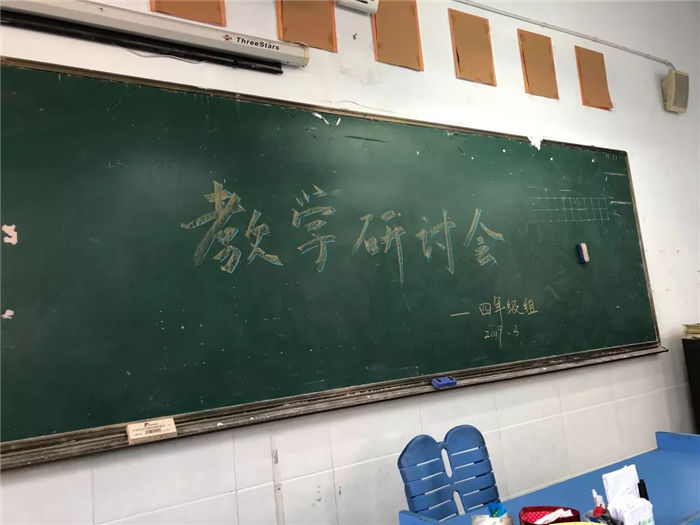 ThreeStars
教学研讨会
— 四年级组
2019.3